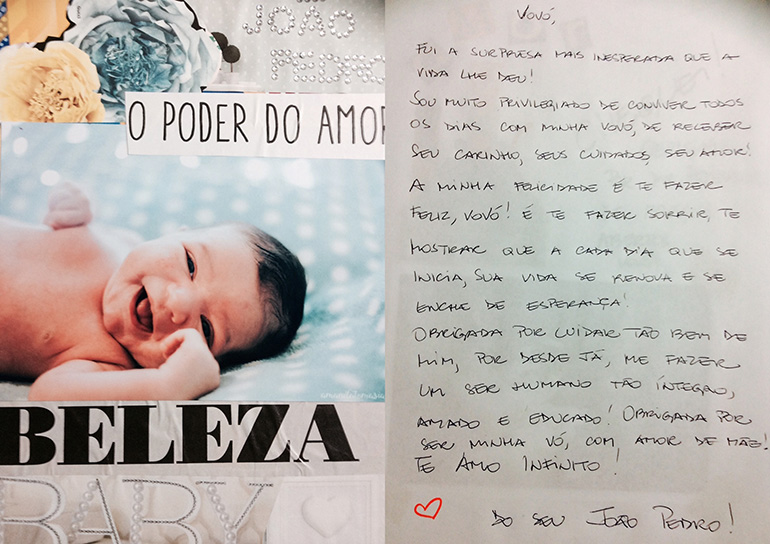 JOÃO
PEDRO
O PODER DO AMOR
BELEZA
BABY
VOVÓ,
FUI A SURPRESA MAIS INESPERADA QUE A
VIDA LHE DEU!
SOU MUITO PRIVILEGIADO DE CONVIVER TODOS
OS DIAS COM MINHA VOVÓ, DE RECEBER
SEU CARINHO, SEUS CUIDADOS, SEU AMOR!
A MINHA FELICIDADE É TE FAZER
FELIZ, VOVÓ! É TE FAZER SORRIR, TE
MOSTRAR QUE A CADA DIA QUE SE
INICIA, SUA VIDA SE RENOVA E SE
ENCHE DE ESPERANÇA!
OBRIGADA POR CUIDAR TÃO BEM DE
MIM, POR DESDE JÁ, ME FAZER
UM SER HUMANO TÃO ÍNTEGRO,
AMADO E EDUCADO! OBRIGADA POR
SER MINHA VÓ, COM AMOR DE MÃE!
TE AMO INFINITO!
DO SEU JOÃO PEDRO!